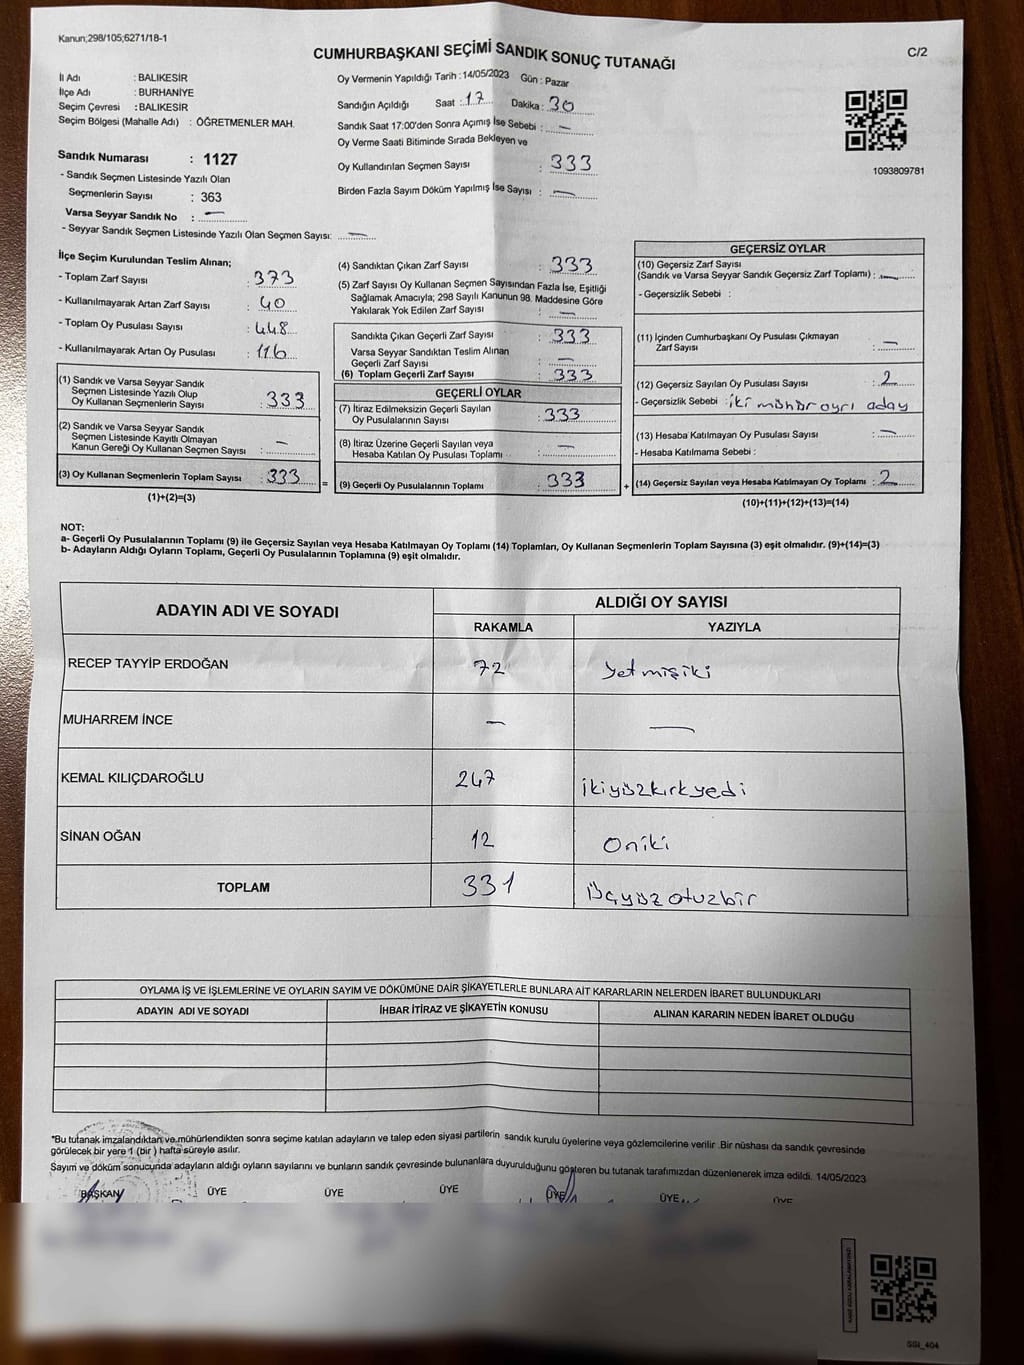 Kanun;298/105;6271/18-1
CUMHURBAŞKANI SEÇİMİ SANDIK SONUÇ TUTANAĞI
C/2
İl Adı : BALIKESİR
İlçe Adı : BURHANİYE
Seçim Çevresi : BALIKESİR
Seçim Bölgesi (Mahalle Adı) : ÖĞRETMENLER MAH.
Sandık Numarası : 1127
- Sandık Seçmen Listesinde Yazılı Olan
Seçmenlerin Sayısı : 363
Varsa Seyyar Sandık No : —
- Seyyar Sandık Seçmen Listesinde Yazılı Olan Seçmen Sayısı: —
Oy Vermenin Yapıldığı Tarih : 14/05/2023 Gün : Pazar
Sandığın Açıldığı Saat : 17 Dakika : 30
Sandık Saat 17:00'den Sonra Açımış İse Sebebi : —
Oy Verme Saati Bitiminde Sırada Bekleyen ve
Oy Kullandırılan Seçmen Sayısı : 333
Birden Fazla Sayım Döküm Yapılmış İse Sayısı : —
1093809781
İlçe Seçim Kurulundan Teslim Alınan;
- Toplam Zarf Sayısı : 373
- Kullanılmayarak Artan Zarf Sayısı : 40
- Toplam Oy Pusulası Sayısı : 448
- Kullanılmayarak Artan Oy Pusulası : 116
(1) Sandık ve Varsa Seyyar Sandık
Seçmen Listesinde Yazılı Olup
Oy Kullanan Seçmenlerin Sayısı : 333
(2) Sandık ve Varsa Seyyar Sandık
Seçmen Listesinde Kayıtlı Olmayan
Kanun Gereği Oy Kullanan Seçmen Sayısı : —
(3) Oy Kullanan Seçmenlerin Toplam Sayısı : 333
(1)+(2)=(3)
=
(4) Sandıktan Çıkan Zarf Sayısı : 333
(5) Zarf Sayısı Oy Kullanan Seçmen Sayısından Fazla İse, Eşitliği
Sağlamak Amacıyla; 298 Sayılı Kanunun 98. Maddesine Göre
Yakılarak Yok Edilen Zarf Sayısı : —
Sandıkta Çıkan Geçerli Zarf Sayısı : 333
Varsa Seyyar Sandıktan Teslim Alınan
Geçerli Zarf Sayısı : —
(6) Toplam Geçerli Zarf Sayısı : 333
GEÇERLİ OYLAR
(7) İtiraz Edilmeksizin Geçerli Sayılan
Oy Pusulasının Sayısı : 333
(8) İtiraz Üzerine Geçerli Sayılan veya
Hesaba Katılan Oy Pusulası Toplamı : —
(9) Geçerli Oy Pusulalarının Toplamı : 333
+
GEÇERSİZ OYLAR
(10) Geçersiz Zarf Sayısı
(Sandık ve Varsa Seyyar Sandık Geçersiz Zarf Toplamı) : —
- Geçersizlik Sebebi :
(11) İçinden Cumhurbaşkanı Oy Pusulası Çıkmayan
Zarf Sayısı : —
(12) Geçersiz Sayılan Oy Pusulası Sayısı : 2
- Geçersizlik Sebebi : iki mühür ayrı aday
(13) Hesaba Katılmayan Oy Pusulası Sayısı : —
- Hesaba Katılmama Sebebi :
(14) Geçersiz Sayılan veya Hesaba Katılmayan Oy Toplamı : 2
(10)+(11)+(12)+(13)=(14)
NOT:
a- Geçerli Oy Pusulalarının Toplamı (9) ile Geçersiz Sayılan veya Hesaba Katılmayan Oy Toplamı (14) Toplamları, Oy Kullanan Seçmenlerin Toplam Sayısına (3) eşit olmalıdır. (9)+(14)=(3)
b- Adayların Aldığı Oyların Toplamı, Geçerli Oy Pusulalarının Toplamına (9) eşit olmalıdır.
ADAYIN ADI VE SOYADI
ALDIĞI OY SAYISI
RAKAMLA YAZIYLA
RECEP TAYYİP ERDOĞAN 72 Yetmişiki
MUHARREM İNCE — —
KEMAL KILIÇDAROĞLU 247 ikiyüzkırkyedi
SİNAN OĞAN 12 Oniki
TOPLAM 331 Üçyüzotuzbir
OYLAMA İŞ VE İŞLEMLERİNE VE OYLARIN SAYIM VE DÖKÜMÜNE DAİR ŞİKAYETLERLE BUNLARA AİT KARARLARIN NELERDEN İBARET BULUNDUKLARI
ADAYIN ADI VE SOYADI İHBAR İTİRAZ VE ŞİKAYETİN KONUSU ALINAN KARARIN NEDEN İBARET OLDUĞU
*Bu tutanak imzalandıktan ve mühürlendikten sonra seçime katılan adayların ve talep eden siyasi partilerin sandık kurulu üyelerine veya gözlemcilerine verilir. Bir nüshası da sandık çevresinde
görülecek bir yere 1 (bir ) hafta süreyle asılır.
Sayım ve döküm sonucunda adayların aldığı oyların sayılarını ve bunların sandık çevresinde bulunanlara duyurulduğunu gösteren bu tutanak tarafımızdan düzenlenerek imza edildi. 14/05/2023
BAŞKAN ÜYE ÜYE ÜYE ÜYE ÜYE ÜYE
SSI_404